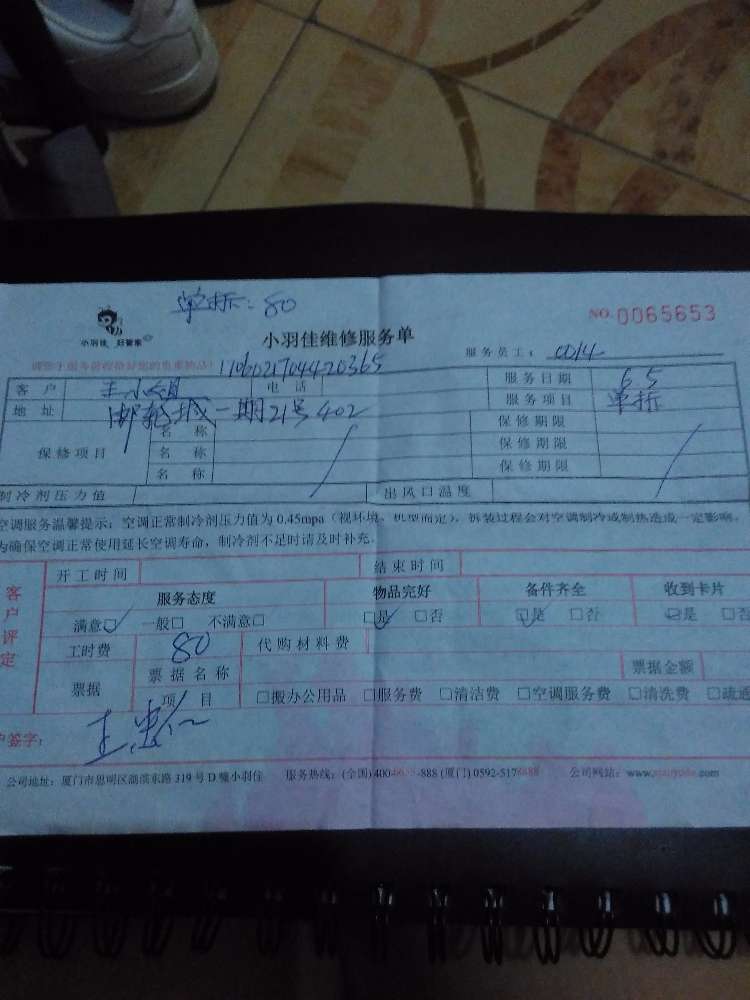 单拆：80
NO.0065653
小羽佳 好管家
小羽佳维修服务单
服务员工： 0014
1106021704420365
客户 王小姐 电话 服务日期 6 5
地址 邮轮城一期21号402 服务项目 单拆
保修项目 名称 保修期限
名称 保修期限
名称 保修期限
制冷剂压力值 出风口温度
空调服务温馨提示：空调正常制冷剂压力值为 0.45mpa（视环境、机型而定），拆装过程会对空调制冷或制热造成一定影响。
为确保空调正常使用延长空调寿命，制冷剂不足时请及时补充.
客户评定
开工时间 结束时间
服务态度 物品完好 备件齐全 收到卡片
满意☑ 一般□ 不满意□ ☑是 □否 ☑是 □否 ☑是 □否
工时费 80 代购材料费
票据 票据名称 票据金额
项目 □搬办公用品 □服务费 □清洁费 □空调服务费 □清洗费 □疏通
户签字：
公司地址：厦门市思明区湖滨东路 319 号 D 幢小羽佳 服务热线：(全国)400 -888 (厦门) 0592-517 公司网站：www. .com